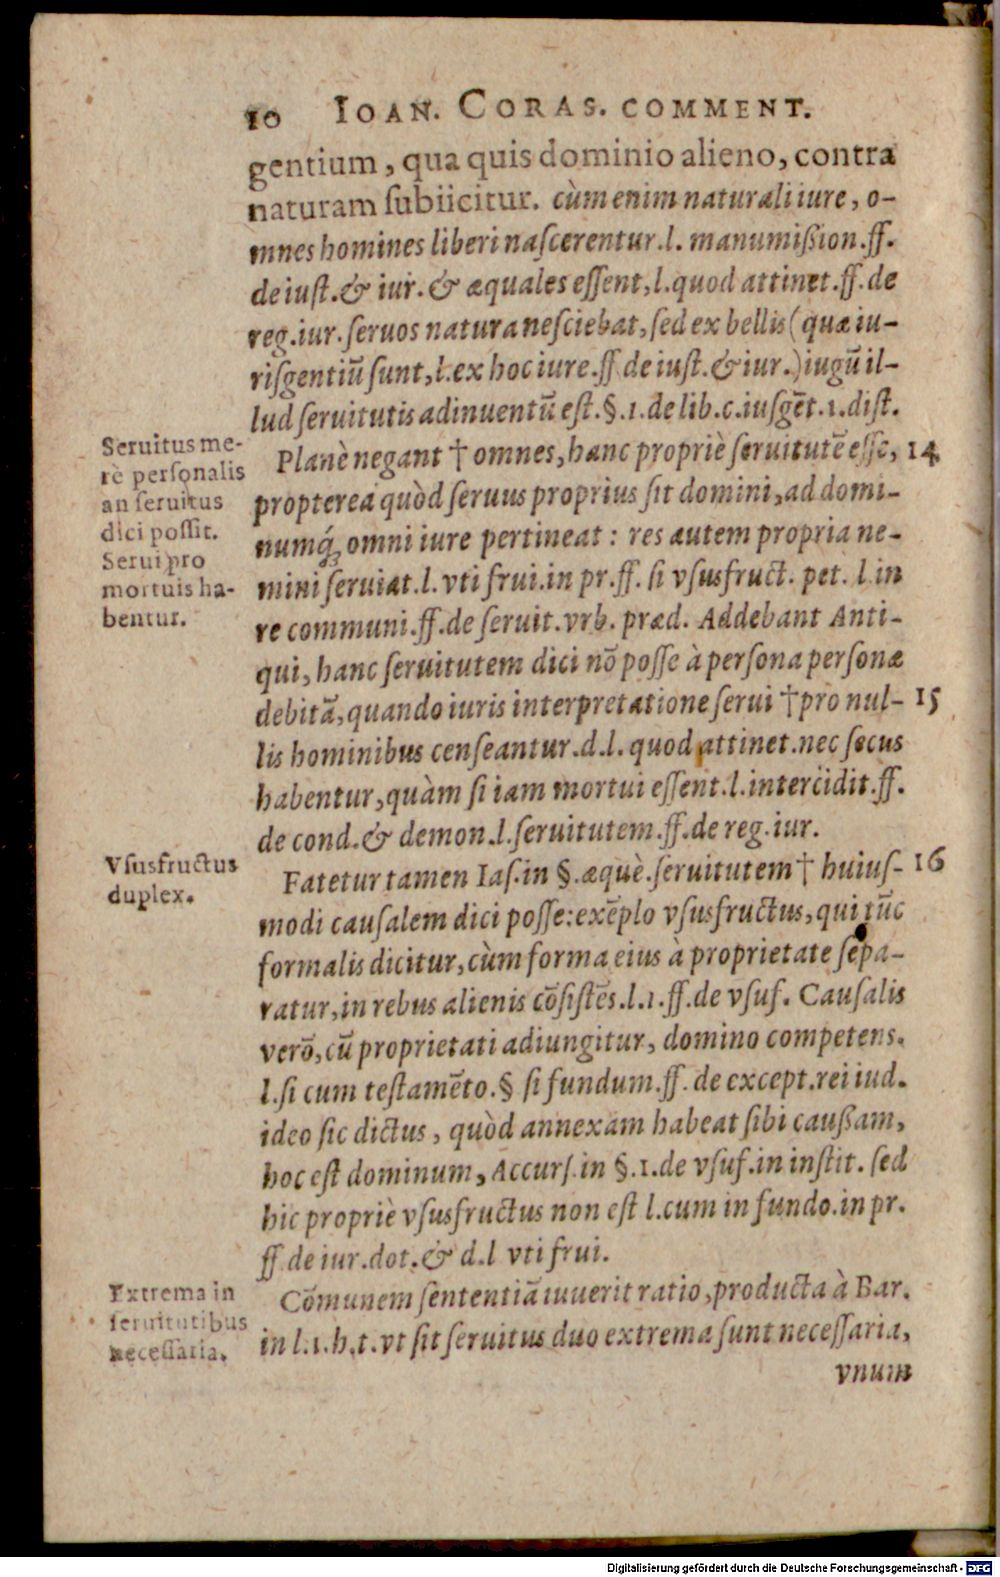 10 IOAN. CORAS. COMMENT.
gentium, qua quis dominio alieno, contra
naturam ſubiicitur. cùm enim naturali iure, o-
mnes homines liberi naſcerentur.l. manumißion.ff.
de iuſt.& iur.& æquales eſſent,l.quod attinet.ff.de
reg.iur.ſeruos natura neſciebat,ſed ex bellis (quæ iu-
riſgentiũ ſunt,l.ex hoc iure.ff de iuſt.& iur.) iugũ il-
lud ſeruitutis adinuentũ eſt.§.1.de lib.c.iuſgẽt.1.diſt.
Seruitus me-
rè perſonalis
an ſeruitus
dici poſſit.
Serui pro
mortuis ha-
bentur.
Planè negant † omnes, hanc propriè ſeruitutẽ eſſe, 14
propterea quòd ſeruus proprius ſit domini, ad domi-
numq́ꝫ omni iure pertineat : res autem propria ne-
mini ſeruiat.l. vti frui.in pr.ff. ſi vſusfruct. pet. l.in
re communi.ff.de ſeruit.vrb. præd. Addebant Anti-
qui, hanc ſeruitutem dici nõ poſſe à perſona perſonæ
debitã, quando iuris interpretatione ſerui † pro nul- 15
lis hominibus cenſeantur.d.l. quod attinet.nec ſecus
habentur, quàm ſi iam mortui eſſent.l.intercidit.ff.
de cond.& demon.l.ſeruitutem.ff.de reg.iur.
Vſusfructus
duplex.
Fatetur tamen Iaſ.in §.æquè.ſeruitutem † huiuſ- 16
modi cauſalem dici poſſe: exẽplo vſusfructus, qui tũc
formalis dicitur, cùm forma eius à proprietate ſepa-
ratur, in rebus alienis cõſiſtẽs.l.1.ff.de vſuf. Cauſalis
verò, cũ proprietati adiungitur, domino competens.
l.ſi cum teſtamẽto.§ ſi fundum.ff. de except.rei iud.
ideo ſic dictus, quòd annexam habeat ſibi cauſſam,
hoc eſt dominum, Accurſ.in §.1.de vſuf.in inſtit. ſed
hic propriè vſusfructus non eſt l.cum in fundo.in pr.
ff de iur.dot.& d.l vti frui.
Extrema in
ſeruitutibus
neceſſaria.
Cõmunem ſententiã iuuerit ratio, producta à Bar.
in l.1.h.t.vt ſit ſeruitus duo extrema ſunt neceſſaria,
vnum
Digitalisierung gefördert durch die Deutsche Forschungsgemeinschaft - DFG